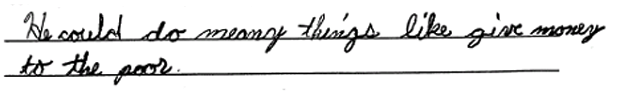 He could do meany things like give money
to the poor.